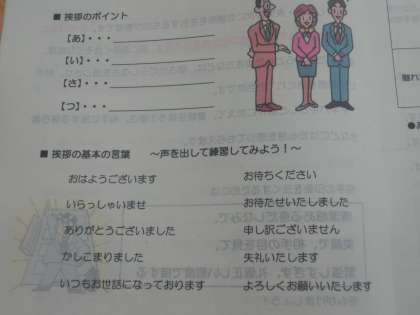 ■ 挨拶のポイント
【あ】・・・
【い】・・・
【さ】・・・
【つ】・・・
■ 挨拶の基本の言葉 ～声を出して練習してみよう！～
おはようございます お待ちください
いらっしゃいませ お待たせいたしました
ありがとうございました 申し訳ございません
かしこまりました 失礼いたします
いつもお世話になっております よろしくお願いいたします